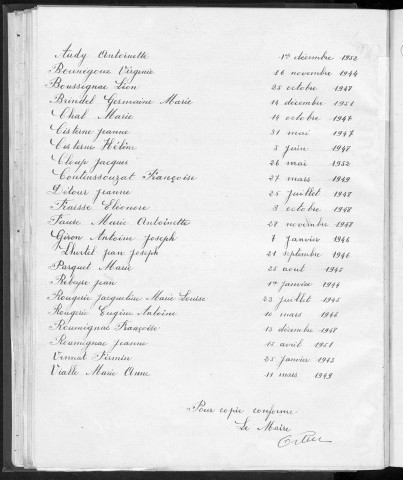 Audy Antoinette 1er décembre 1952
Bournegoux Virginie 26 novembre 1944
Boussignac Léon 25 octobre 1947
Brindel Germaine Marie 14 décembre 1951
Chal Marie 14 octobre 1947
Cisterne Jeanne 31 mai 1947
Cisterne Hélène 3 juin 1948
Cloup Jacques 26 mai 1952
Continssouzat Françoise 27 mars 1949
Détour Jeanne 25 juillet 1948
Feaisse Eléonore 3 octobre 1948
Fause Marie Antoinette 28 novembre 1948
Giron Antoine Joseph 7 janvier 1946
Lhertel Jean Joseph 21 septembre 1946
Parquet Marie 25 aout 1945
Rebeyre Jean 1er janvier 1944
Rougerie Jacqueline Marie Louise 23 juillet 1945
Rougerie Eugène Antoine 10 mars 1946
Roumignac Françoise 13 décembre 1948
Roumignac Jeanne 15 avril 1951
Vennat Firmin 25 janvier 1945
Vialle Marie Anne 11 mars 1949
Pour copie conforme
Le Maire